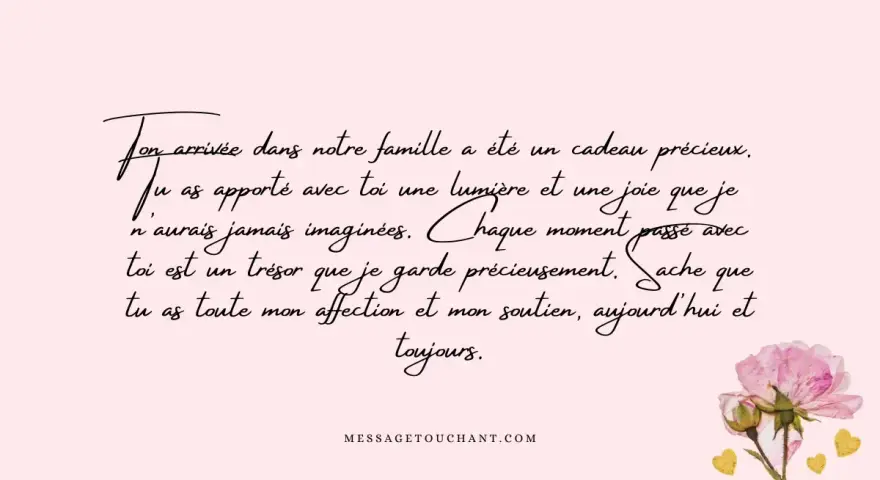 Ton arrivée dans notre famille a été un cadeau précieux.
Tu as apporté avec toi une lumière et une joie que je
n'aurais jamais imaginées. Chaque moment passé avec
toi est un trésor que je garde précieusement. Sache que
tu as toute mon affection et mon soutien, aujourd'hui et
toujours.
MESSAGETOUCHANT.COM